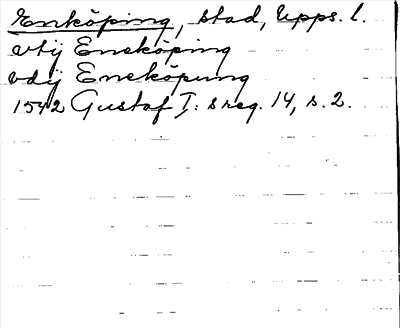 Enköping, stad, Upps. l.
vtij Eneköping
vdij Eneköpung
1542 Gustaf I: s reg. 14, s. 2.